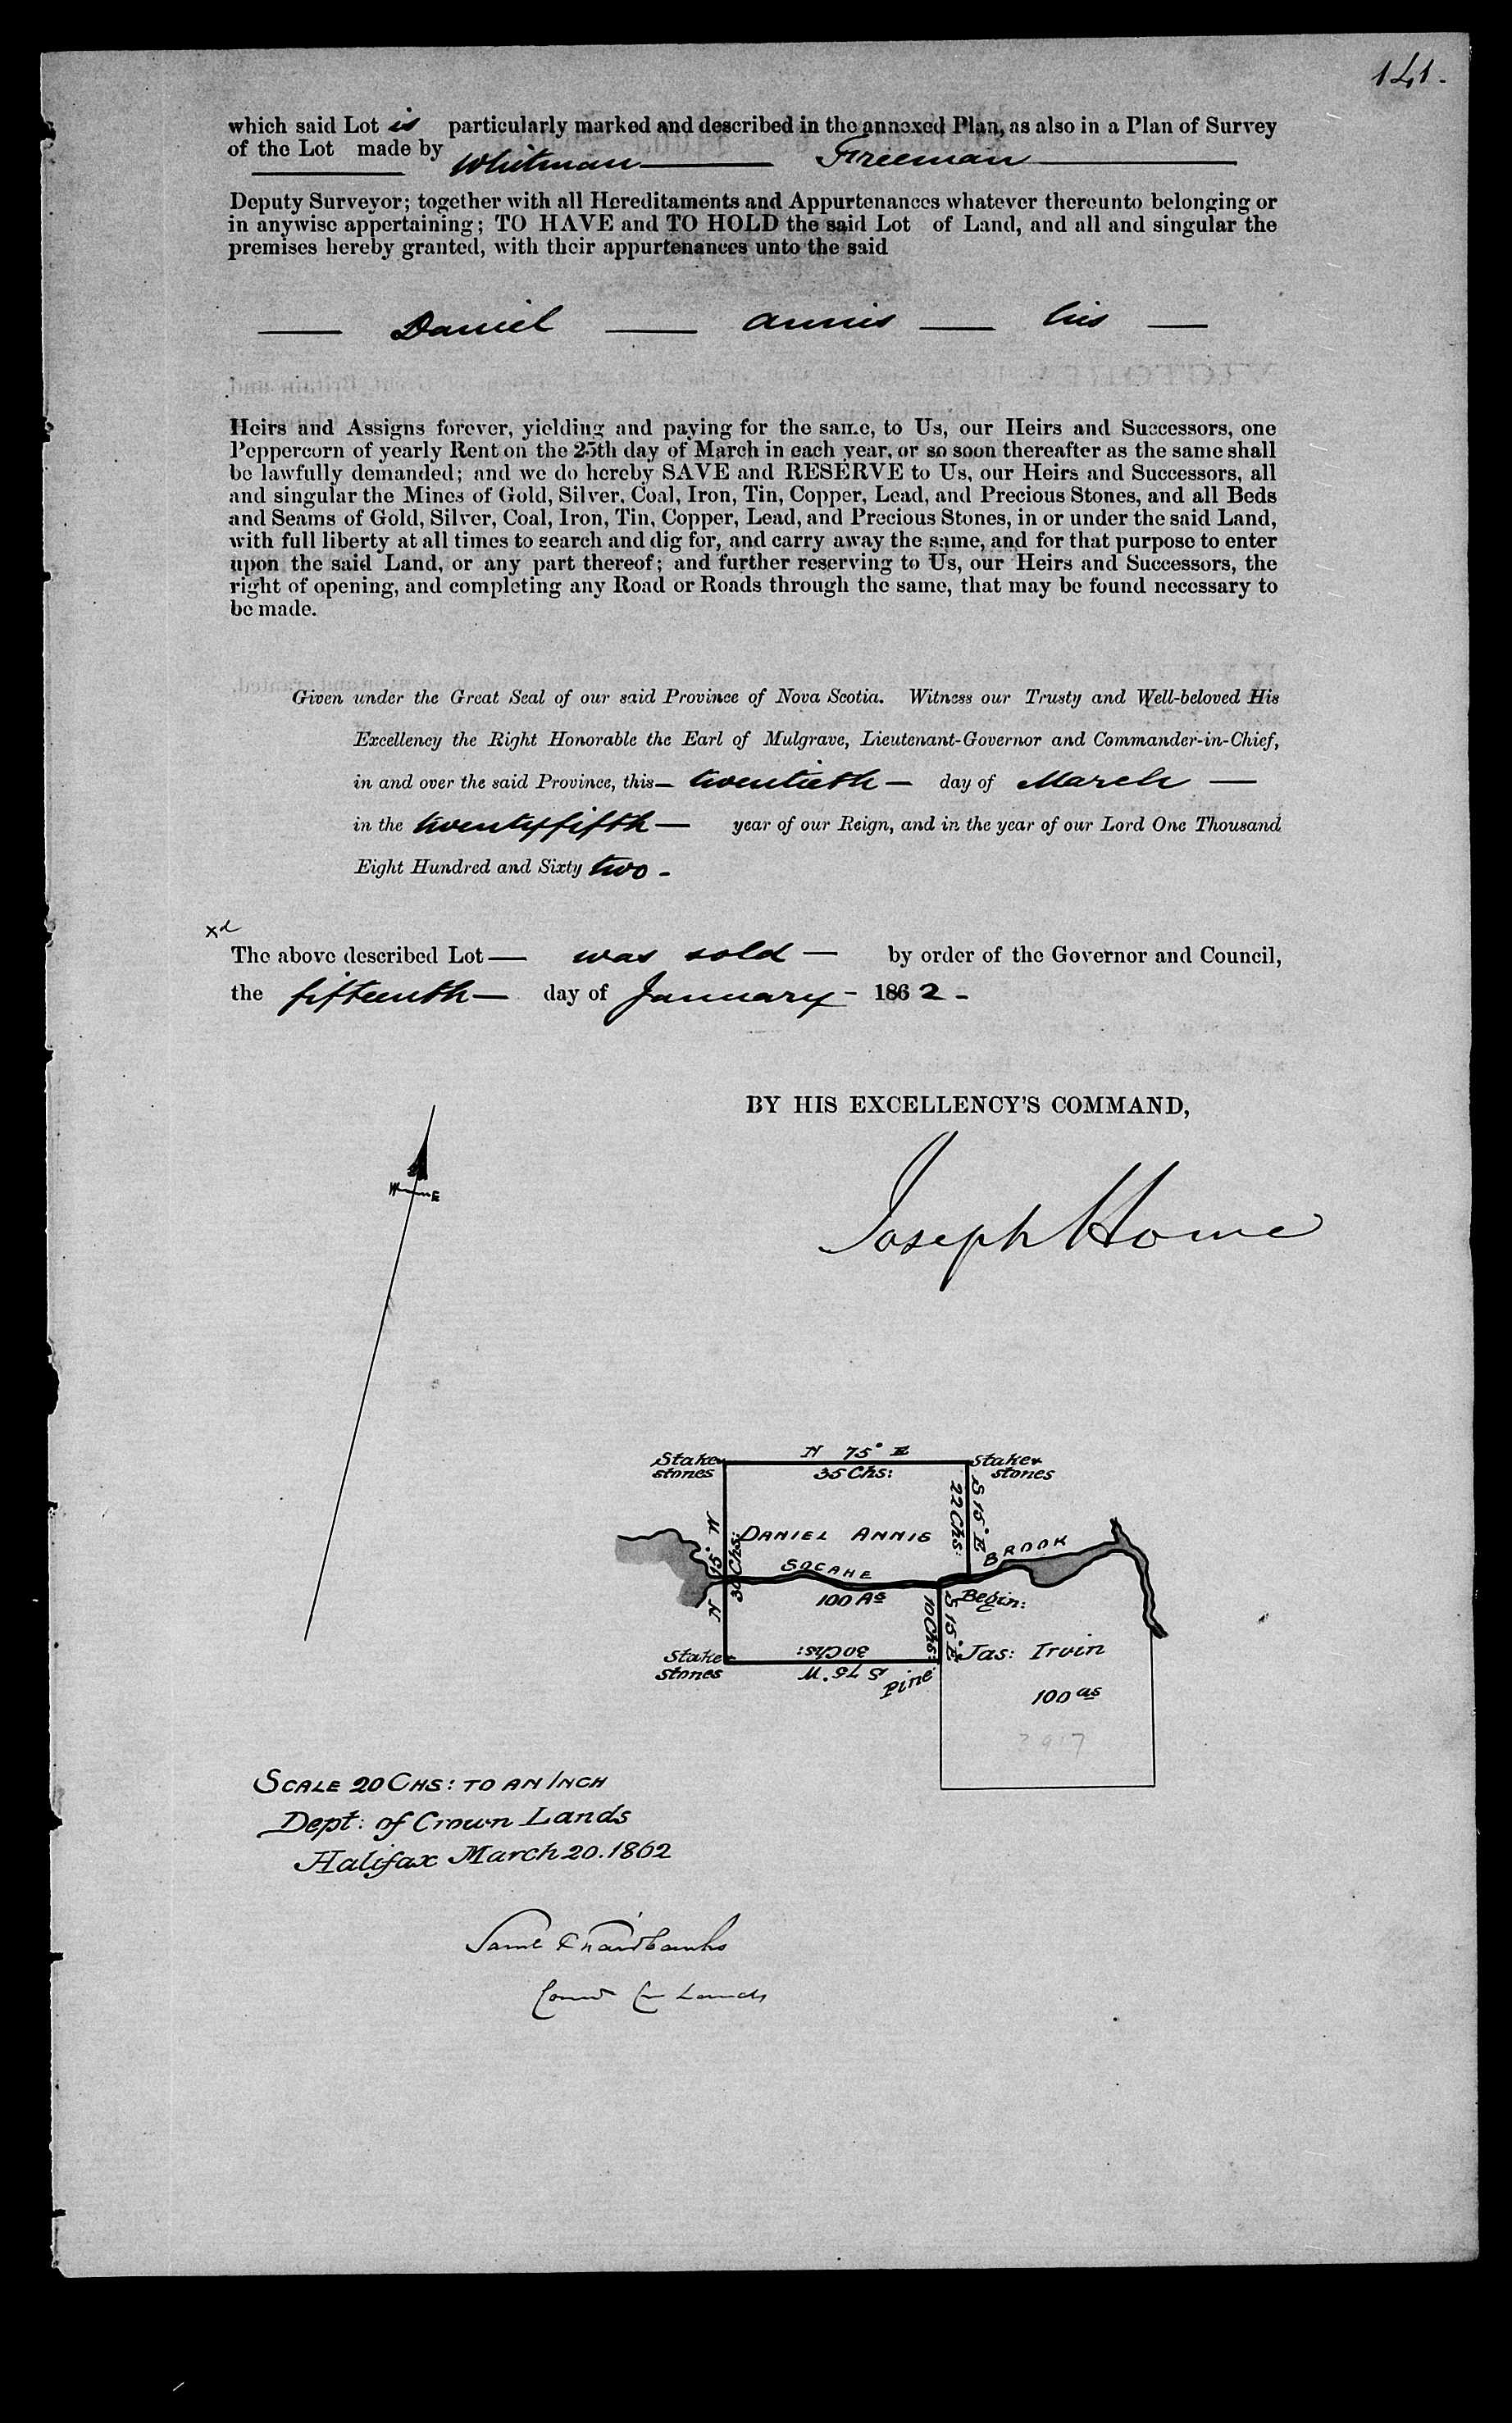 141.
which said Lot is particularly marked and described in the annexed Plan, as also in a Plan of Survey
of the Lot made by Whitman Freeman
Deputy Surveyor; together with all Hereditaments and Appurtenances whatever thereunto belonging or
in anywise appertaining; TO HAVE and TO HOLD the said Lot of Land, and all and singular the
premises hereby granted, with their appurtenances unto the said
— Daniel — Annis — his —
Heirs and Assigns forever, yielding and paying for the same, to Us, our Heirs and Successors, one
Peppercorn of yearly Rent on the 25th day of March in each year, or so soon thereafter as the same shall
be lawfully demanded; and we do hereby SAVE and RESERVE to Us, our Heirs and Successors, all
and singular the Mines of Gold, Silver, Coal, Iron, Tin, Copper, Lead, and Precious Stones, and all Beds
and Seams of Gold, Silver, Coal, Iron, Tin, Copper, Lead, and Precious Stones, in or under the said Land,
with full liberty at all times to search and dig for, and carry away the same, and for that purpose to enter
upon the said Land, or any part thereof; and further reserving to Us, our Heirs and Successors, the
right of opening, and completing any Road or Roads through the same, that may be found necessary to
be made.
Given under the Great Seal of our said Province of Nova Scotia. Witness our Trusty and Well-beloved His
Excellency the Right Honorable the Earl of Mulgrave, Lieutenant-Governor and Commander-in-Chief,
in and over the said Province, this — twentieth — day of March —
in the twentyfifth — year of our Reign, and in the year of our Lord One Thousand
Eight Hundred and Sixty two -
xd
The above described Lot — was sold — by order of the Governor and Council,
the fifteenth — day of January - 1862 -
BY HIS EXCELLENCY'S COMMAND,
W E
Joseph Howe
N 75° E
Stake &
stones
35 Chs:
Stake &
stones
S 15° E
22 Chs:
N 15° W
30 Chs:
DANIEL ANNIS
SOCAHE BROOK
100 As
Begin:
10 Chs:
S 15° E
30 Chs:
S 75° W
Stake &
stones
Pine
Jas: Irvin
100 as
2917
SCALE 20 CHS: TO AN INCH
Dept: of Crown Lands
Halifax March 20. 1862
Saml P Fairbanks
Comr Cr Lands